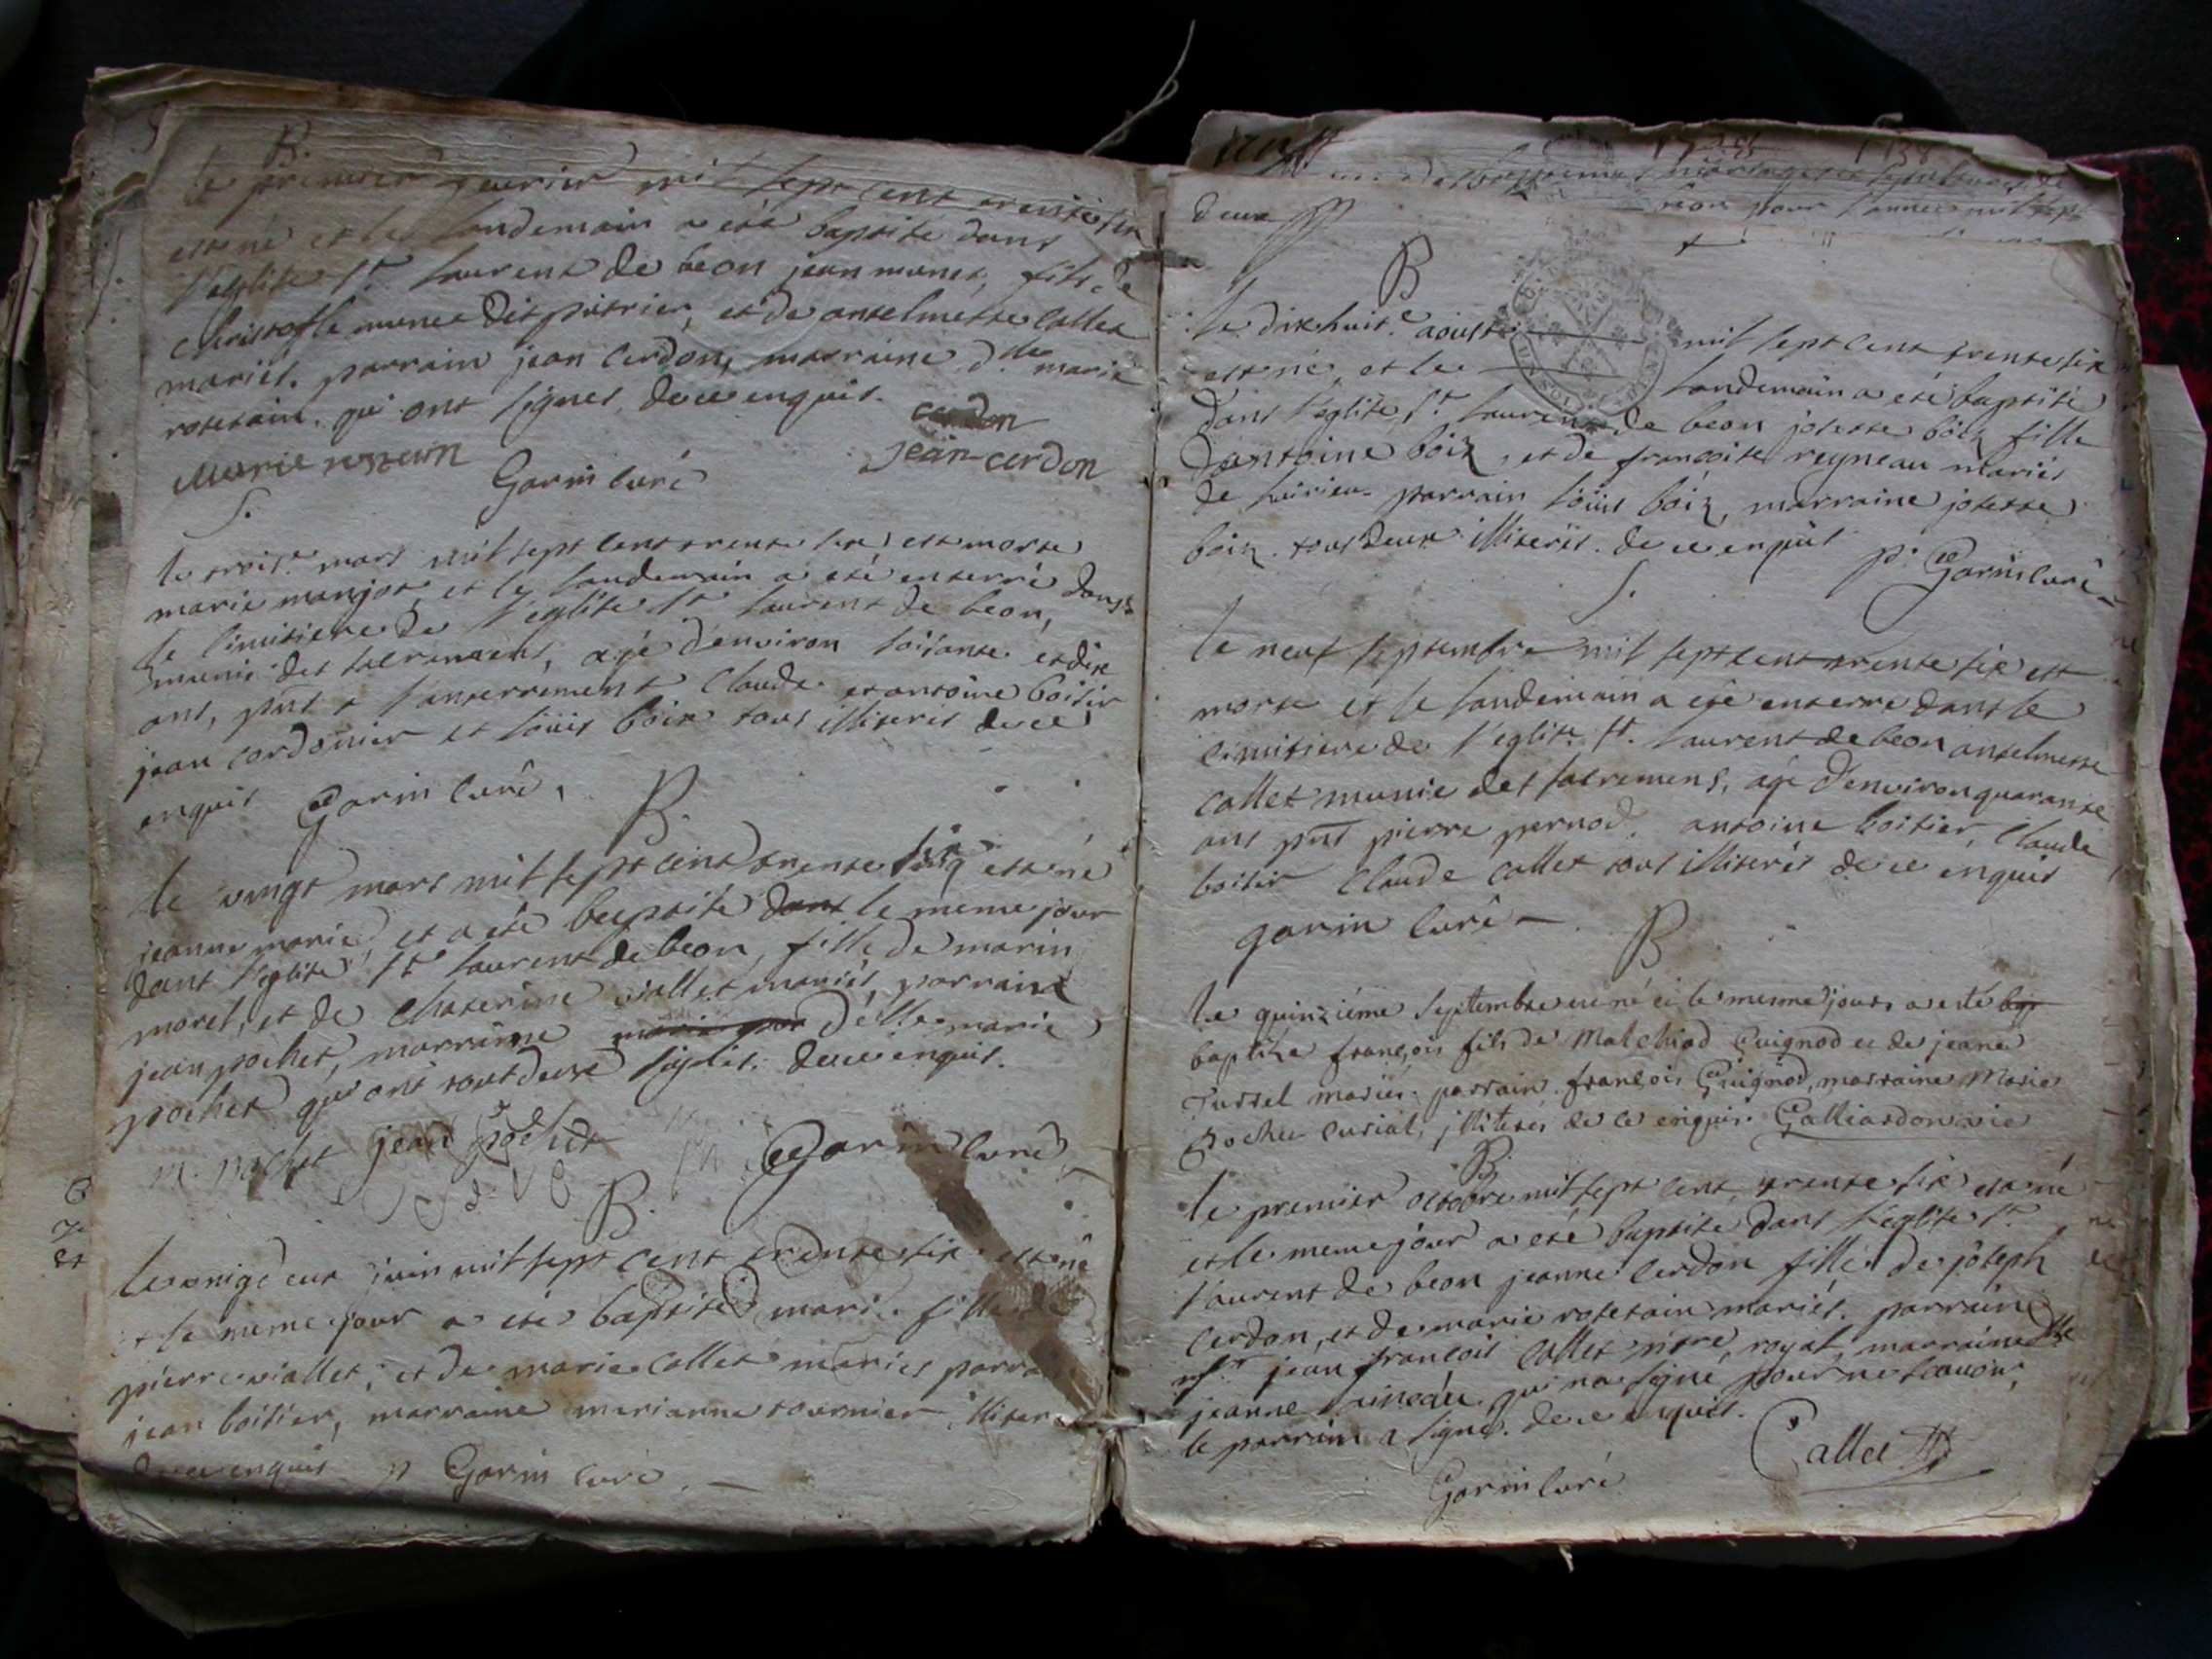 B.
le premier feurier mil sept cent trente six
est né et le landemain a eté baptisé dans
l'eglise St. laurent de beon jean munet, fils de
christofle munet dit pitrier, et de anselmette callet
mariés. parrain jean cerdon, marraine dlle marie
rosetain. qui ont signés. de ce enquis.
cerdon
Marie rosetain jean cerdon
Garin curé
S.
le trois.e mars mil sept cent trente six est morte
marie manjot et le landemain a eté enterré dans
le cimitiere de l'eglise St laurent de beon,
munie des sacremens, agé d'environ soisante et dix
ans, pnt a l'anterrement claude et antoine boitir
jean cordonier et loüis boix tous illiteris de ce
enquis Garin curé,
B.
le vingt mars mil sept cent trente six est né
jeanne marie, et a eté baptisé dans le meme jour
dans l'eglise St laurent de beon, fille de marin
morel, et de chaterine viallet mariés, parrain
jean pochet, marraine marie délle marie
pochet qui ont tout deux signés. de ce enquis.
m. pochet jean pochet Garin curé
B.
le vingt deux juin mil sept cent trente six est né
et le meme jour a eté baptisé marie fille de
pierre viallet, et de marie callet mariés
jean boitier, marraine marianne tournier
de ce enquis p Garin curé.
deux
B
le dixhuit.e aoust mil sept cent trente six
est né, et le landemain a eté baptisé
dans l'eglise St. laurent de beon josette boix fille
d'antoine boix, et de francoise reyneau mariés
de luirieu. parrain loüis boix, marraine josette
boix. tous deux illiterés. de ce enquis p. Garin curé
S.
le neuf septembre mil sept cent trente six est
morte et le landemain a eté enterré dans le
cimitiere de l'eglise St. laurent de beon anselmette
callet munie des sacremens, agé d'environ quarante
ans pnt pierre pernod. antoine boitier, claude
boitir claude callet tous illiterés de ce enquis
garin curé
B
le quinziéme septembre est né et le mesme jours a esté bap
baptize françois fils de Malchiod Guignod et de jeane
Jussel mariés. parrain. françois Guignod, marraine Marie
Pochet curial, jlliterés de ce enquis. Galliardon vic
B.
le premier octobre mil sept cent trente six est né
et le meme jour a eté baptisé dans l'eglise St
laurent de beon jeanne cerdon fille de joseph
cerdon, et de marie rosetain mariés. parrain
Sr jean francois callet ntre, royal, marraine dlle
jeanne qui na signé pour ne scavoir,
le parrain a signé. de ce enquis.
Callet
Garin curé